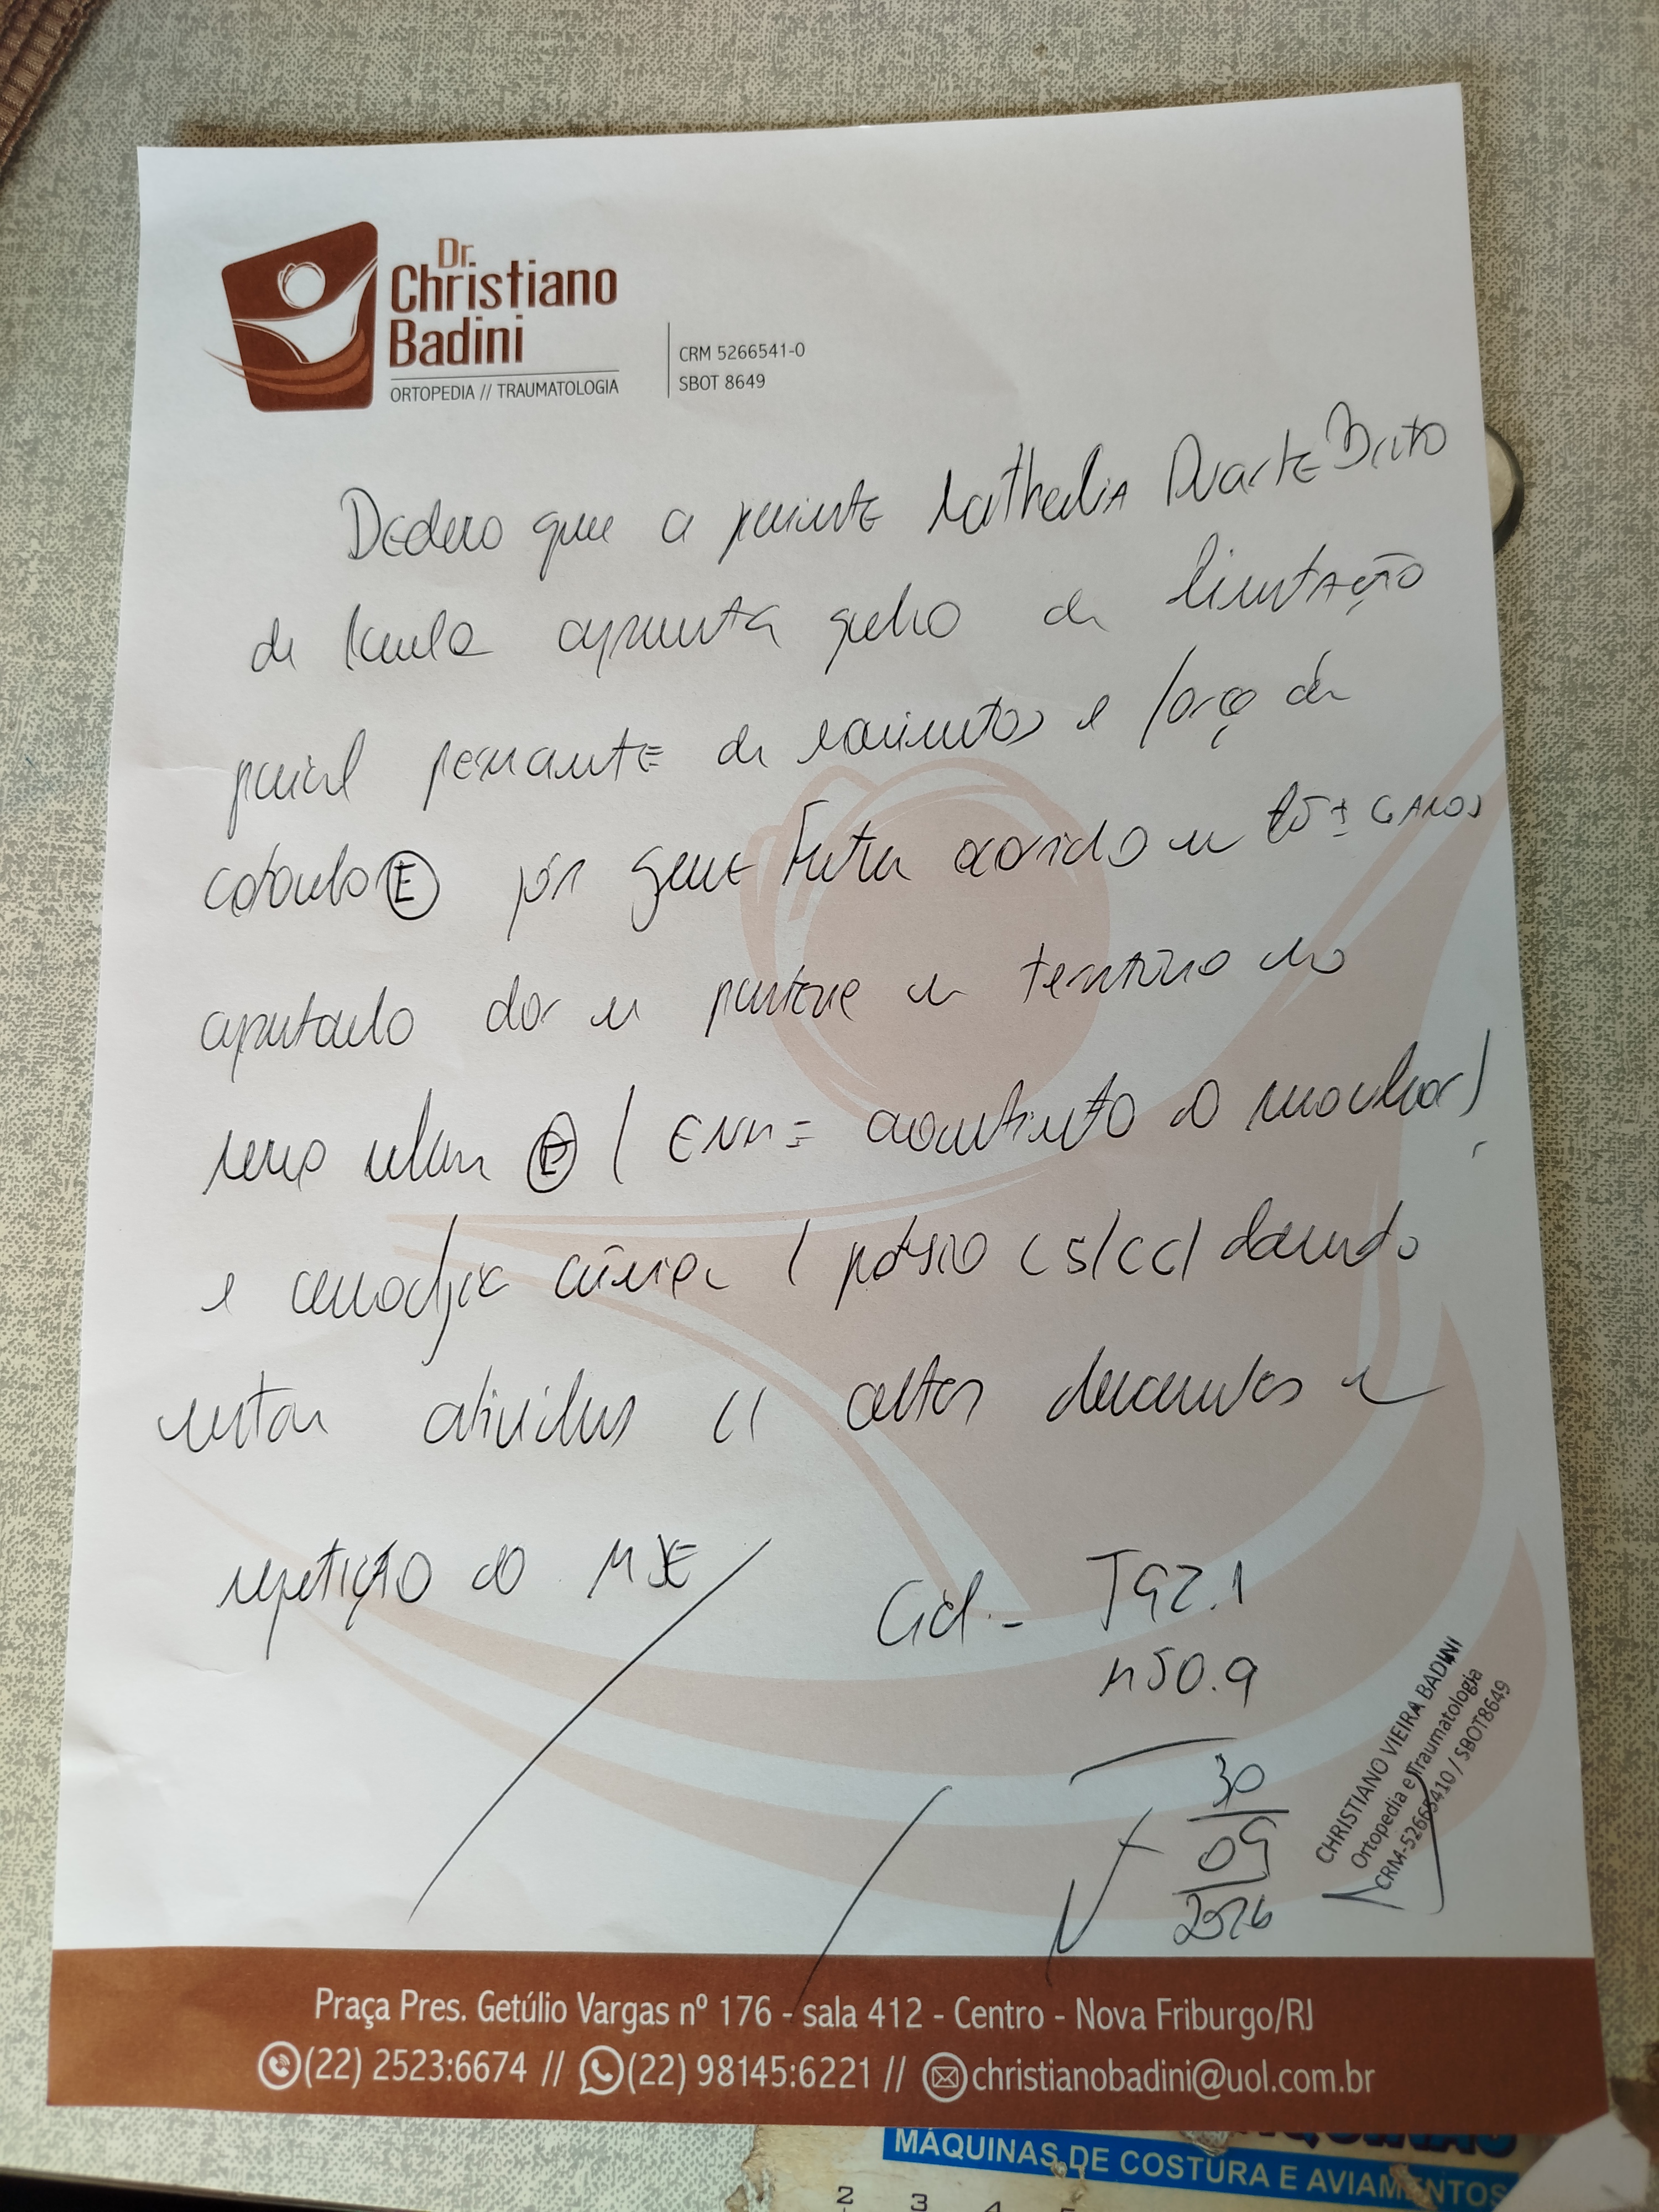 Dr.
Christiano
Badini
ORTOPEDIA // TRAUMATOLOGIA
CRM 5266541-0
SBOT 8649
Declaro que a paciente Nathalia Duarte Brito
de apresenta quadro de limitação
parcial permanente de movimentos e força de
cotovelo E pós grave fratura ocorrido há ± 6 anos
apresentando dor e parestesia em território do
nervo ulnar E ( ENM = acometimento do )
e cervicalgia crônica ( ) devendo
evitar atividades c/ altas demandas e
repetição do MSE
Cid - T92.1
M50.9
30
09
2026
CHRISTIANO VIEIRA BADINI
Ortopedia e Traumatologia
CRM-52665410 / SBOT8649
Praça Pres. Getúlio Vargas nº 176 - sala 412 - Centro - Nova Friburgo/RJ
(22) 2523:6674 // (22) 98145:6221 // christianobadini@uol.com.br
MÁQUINAS DE COSTURA E AVIAMENTOS
2 3 4